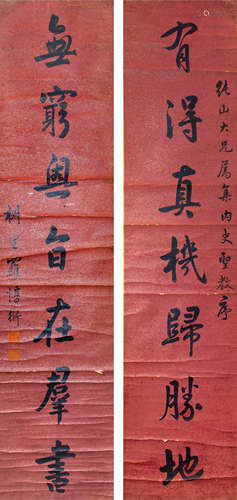 純山大兄屬集內史聖教序
有得真機歸勝地
無窮奧旨在羣書
椒生羅惇衍